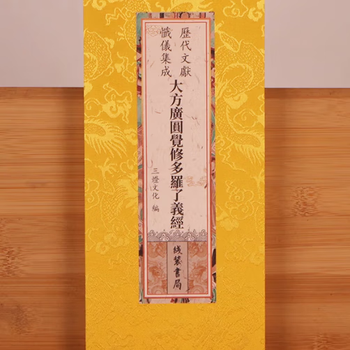 歷代文獻
懺儀集成
大方廣圓覺修多羅了義經
三橙文化 編
线装書局